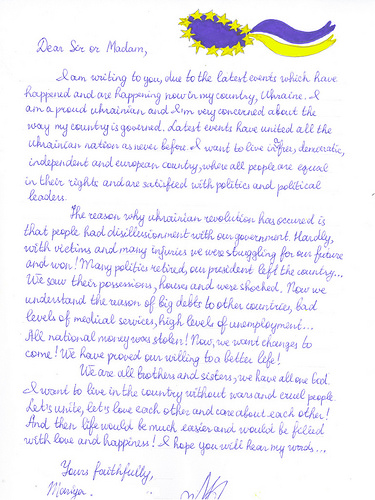 Dear Sir or Madam,
I am writing to you, due to the latest events which have
happened and are happening now in my country, Ukraine. I
am a proud ukrainian and I'm very concerned about the
way my country is governed. Latest events have united all the
ukrainian nation as never before. I want to live in free, democratic,
independent and european country, where all people are equal
in their rights and are satisfied with politics and political
leaders.
The reason why ukrainian revolution has occured is
that people had disillusionment with our government. Hardly,
with victims and many injuries we were struggling for our future
and won! Many politics retired, our president left the country...
We saw their possessions, houses and were shocked. Now we
understand the reason of big debts to other countries, bad
levels of medical services, high levels of unemployment...
All national money was stolen! Now, we want changes to
come! We have proved our willing to a better life!
We are all brothers and sisters, we have all one God.
I want to live in the country without wars and cruel people.
Let's unite, let's love each other and care about each other!
And then life would be much easier and would be filled
with love and happiness! I hope you will hear my words...
Yours faithfully,
Mariya.